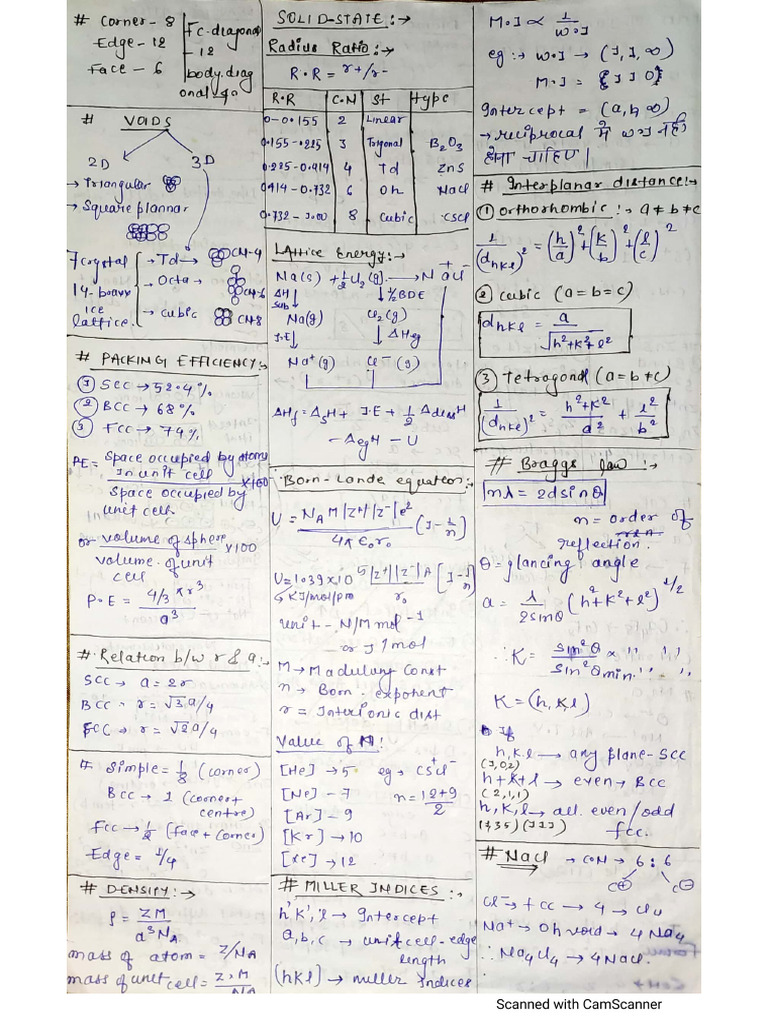 # Corner - 8
Edge - 12
Face - 6
Fc.diagonal
- 12
body.diag
onal - 4
# VOIDS
2D
3D
→ Triangular
→ Square plannar
7 crystal
14-boavv
ice
lattice.
→ Td → CN-4
→ Octa → CN-6
→ Cubic CN8
# PACKING EFFICIENCY:→
① SCC → 52.4%
② BCC → 68%
③ FCC → 74%
PE = Space occupied by atoms
In unit cell ×100
Space occupied by
unit cell
or volume of sphere ×100
volume of unit
cell
P.E = 4/3 πr³
a³
# Relation b/w r & a:→
SCC → a = 2r
BCC → r = √3a/4
FCC → r = √2a/4
# Simple = 1/8 (corner)
BCC → 1 (corner+
centre)
FCC → 1/2 (Face + corner)
Edge = 1/4
# DENSITY:→
ρ = ZM
a³NA
mass of atom = Z/NA
mass of unit cell = Z×M
NA
SOLID-STATE:→
Radius Ratio:→
R.R = r+/r-
R.R C.N St type
0-0.155 2 Linear
0.155-0.225 3 Trigonal B₂O₃
0.225-0.414 4 Td ZnS
0.414-0.732 6 Oh NaCl
0.732-1.00 8 Cubic CSCl
LAttice Energy:→
Na(s) + 1/2 Cl₂(g) → Na⁺Cl⁻
ΔH
Sub ↓ ↓ 1/2 BDE
Na(g) Cl₂(g)
I.E ↓ ↓ ΔHeg
Na⁺(g) Cl⁻(g)
ΔHf = ΔsH + I.E + 1/2 ΔdissH
- ΔegH - U
Born-Lande equation:→
U = NA M|Z+||Z-|e² (1-1/n)
4π ε₀r₀
U = 1.039×10⁵ |Z+||Z-|A [1-1/n]
r₀
↳ KJ/mol/pm
unit - N/M mol⁻¹
or J/mol
M → Madulung Const
n → Born. exponent
r = Interionic dist
Value of n!
[He] → 5 eg → CS⁺Cl⁻
[Ne] - 7 n = 12+9
2
[Ar] - 9
[Kr] → 10
[Xe] → 12
# MILLER INDICES:→
h',K',l' → Intercept
a,b,c → unit cell-edge
length
(hKl) → miller Indices
M.I ∝ 1
W.I
eg:→ W.I → (1,1,∞)
M.I = {110}
Intercept = (a,b,∞)
→ reciprocal में W.I नहीं
होना चाहिए।
# Interplanar distance:→
① Orthorhombic:→ a≠b≠c
1/(dhkl)² = (h/a)² + (k/b)² + (l/c)²
② Cubic (a=b=c)
dhkl = a
√h²+K²+l²
③ Tetragonal (a=b≠c)
1/(dhkl)² = h²+K²/a² + l²/b²
# Braggs law:→
nλ = 2dsinθ
n = order of
reflection.
θ = glancing angle
a = λ/2sinθ (h²+K²+l²)^1/2
∴ K = sin²θ × " " "
sin²θmin. " " "
K = (h,K,l)
If
h,K.l → any plane-SCC
(1,0,2)
h+k+l → even → BCC
(2,1,1)
h,K,l → all. even/odd
(1,3,5) (111) fcc.
# NaCl → C.N → 6 : 6
C⊕ C⊖
Cl⁻ → fcc → 4 → Cl₄
Na⁺ → Oh void → 4 Na₄
∴ Na₄Cl₄ → 4NaCl.
Scanned with CamScanner